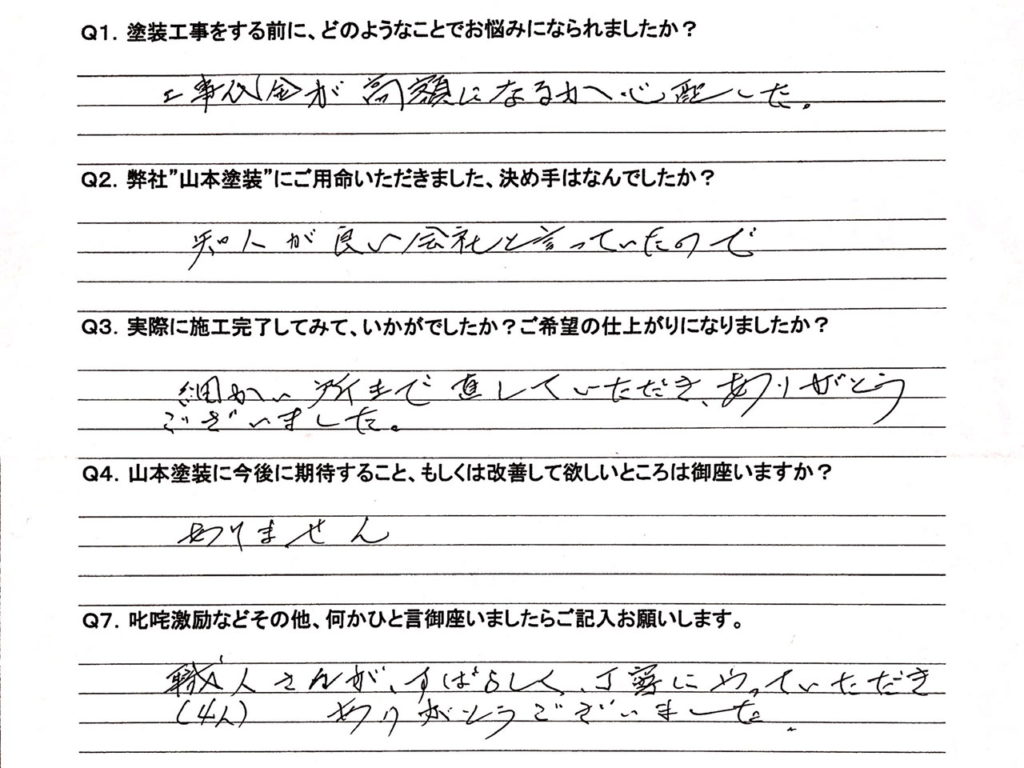 Q1. 塗装工事をする前に、どのようなことでお悩みになられましたか?
工事代金が高額になるか心配した。
Q2. 弊社”山本塗装”にご用命いただきました、決め手はなんでしたか?
知人が良い会社と言っていたので
Q3. 実際に施工完了してみて、いかがでしたか?ご希望の仕上がりになりましたか?
細かい所まで直していただき、ありがとう
ございました。
Q4. 山本塗装に今後に期待すること、もしくは改善して欲しいところは御座いますか?
ありません
Q7. 叱咤激励などその他、何かひと言御座いましたらご記入お願いします。
職人さんが、すばらしく、丁寧にやっていただき
(4人) ありがとうございました。